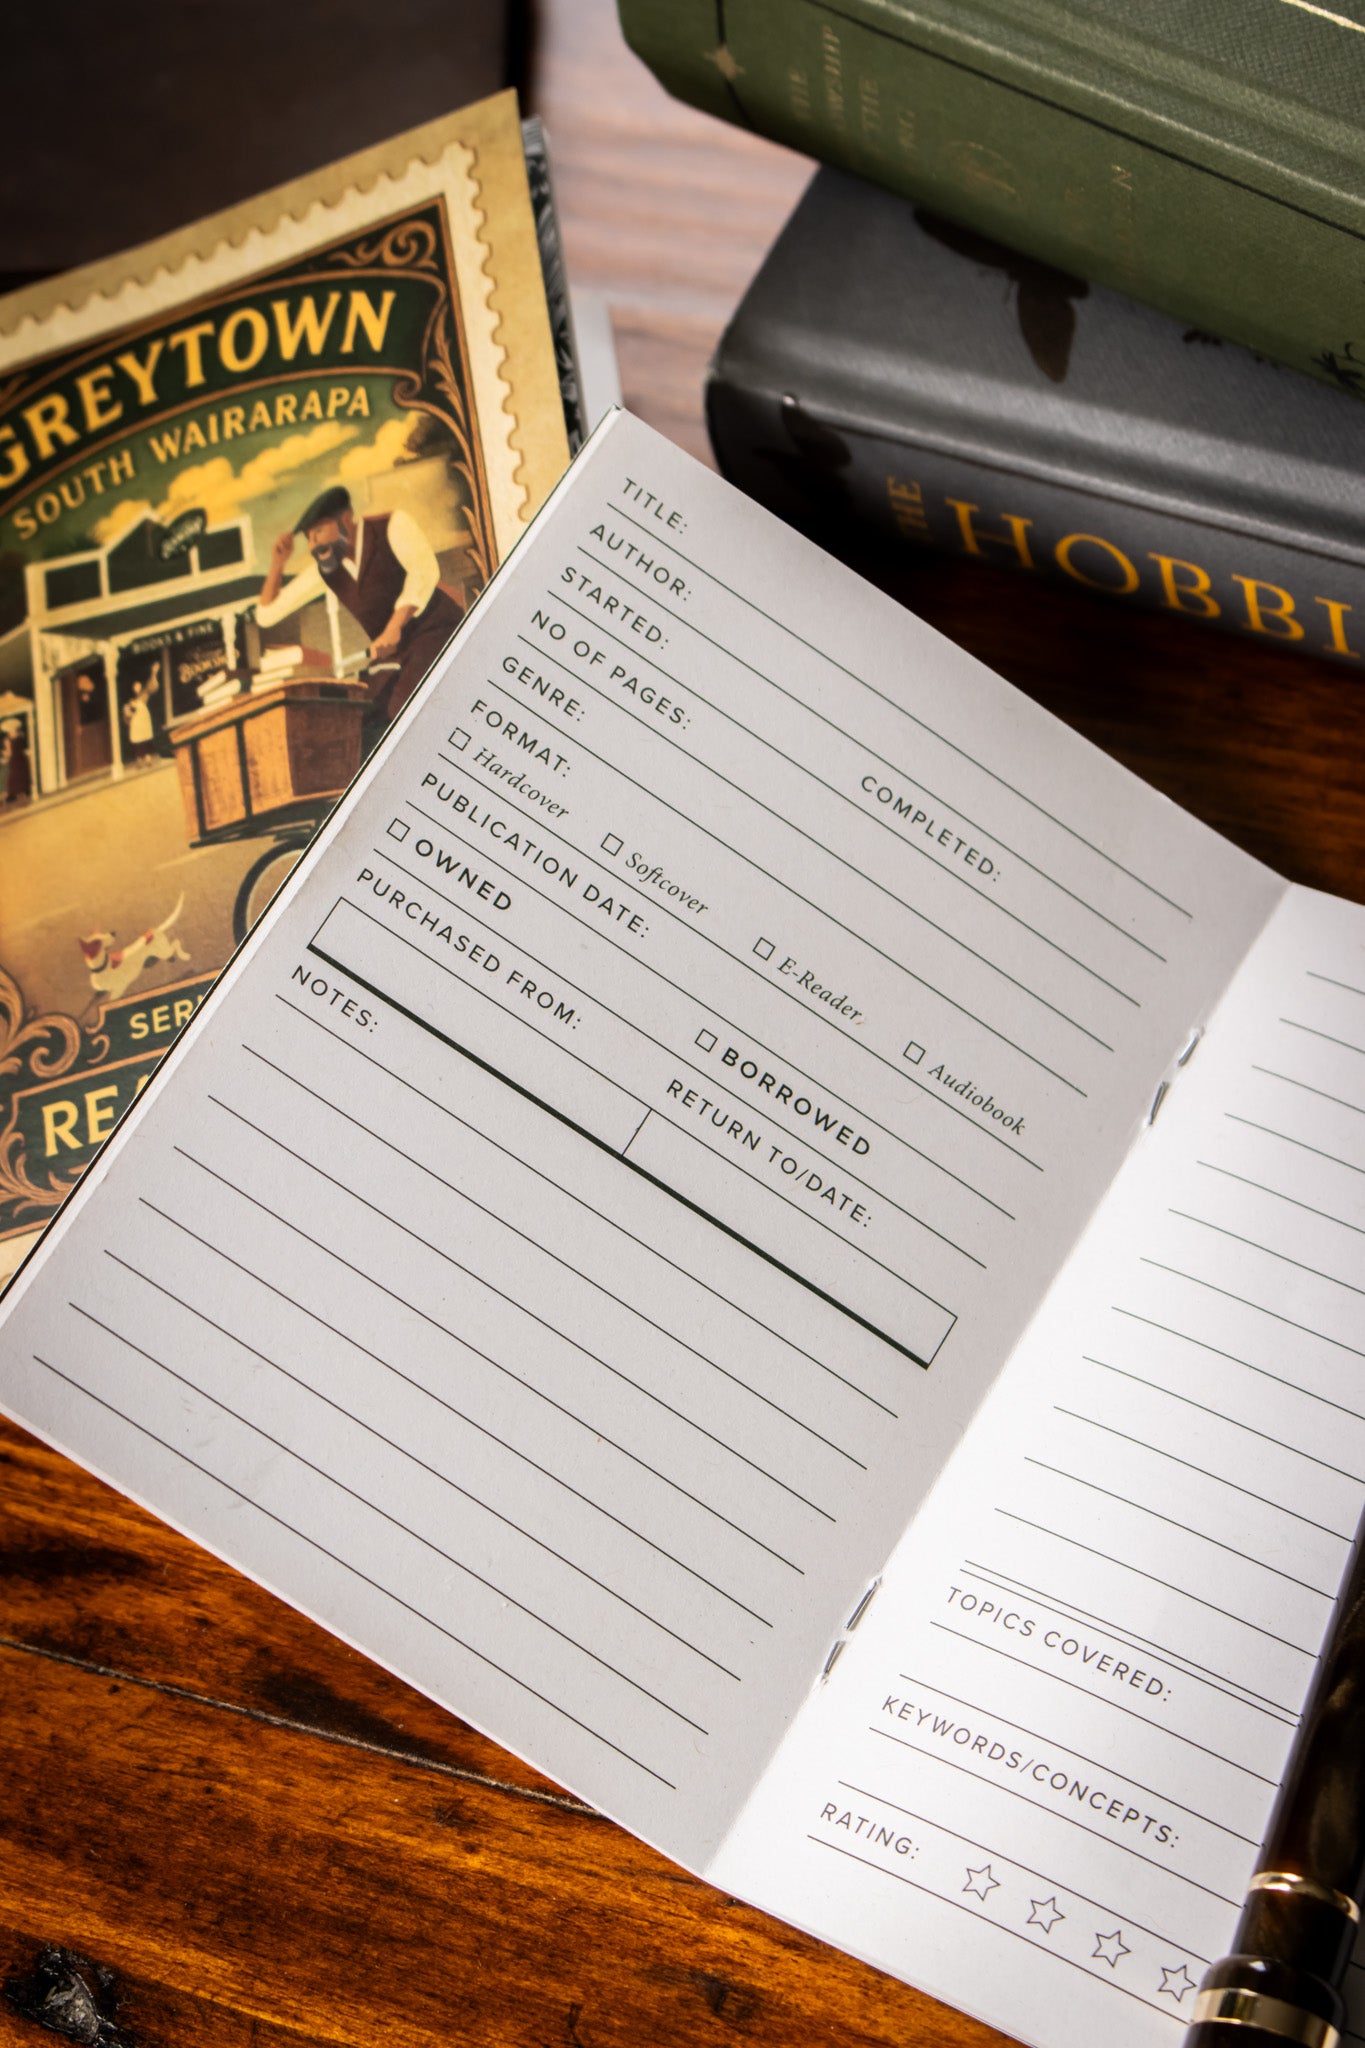 GREYTOWN
SOUTH WAIRARAPA
BOOKS & FINE
SER
REA
THE
THE
THE
HOBBI
TITLE:
AUTHOR:
STARTED: COMPLETED:
NO OF PAGES:
GENRE:
FORMAT:
Hardcover Softcover E-Reader Audiobook
PUBLICATION DATE:
OWNED BORROWED
PURCHASED FROM: RETURN TO/DATE:
NOTES:
TOPICS COVERED:
KEYWORDS/CONCEPTS:
RATING: